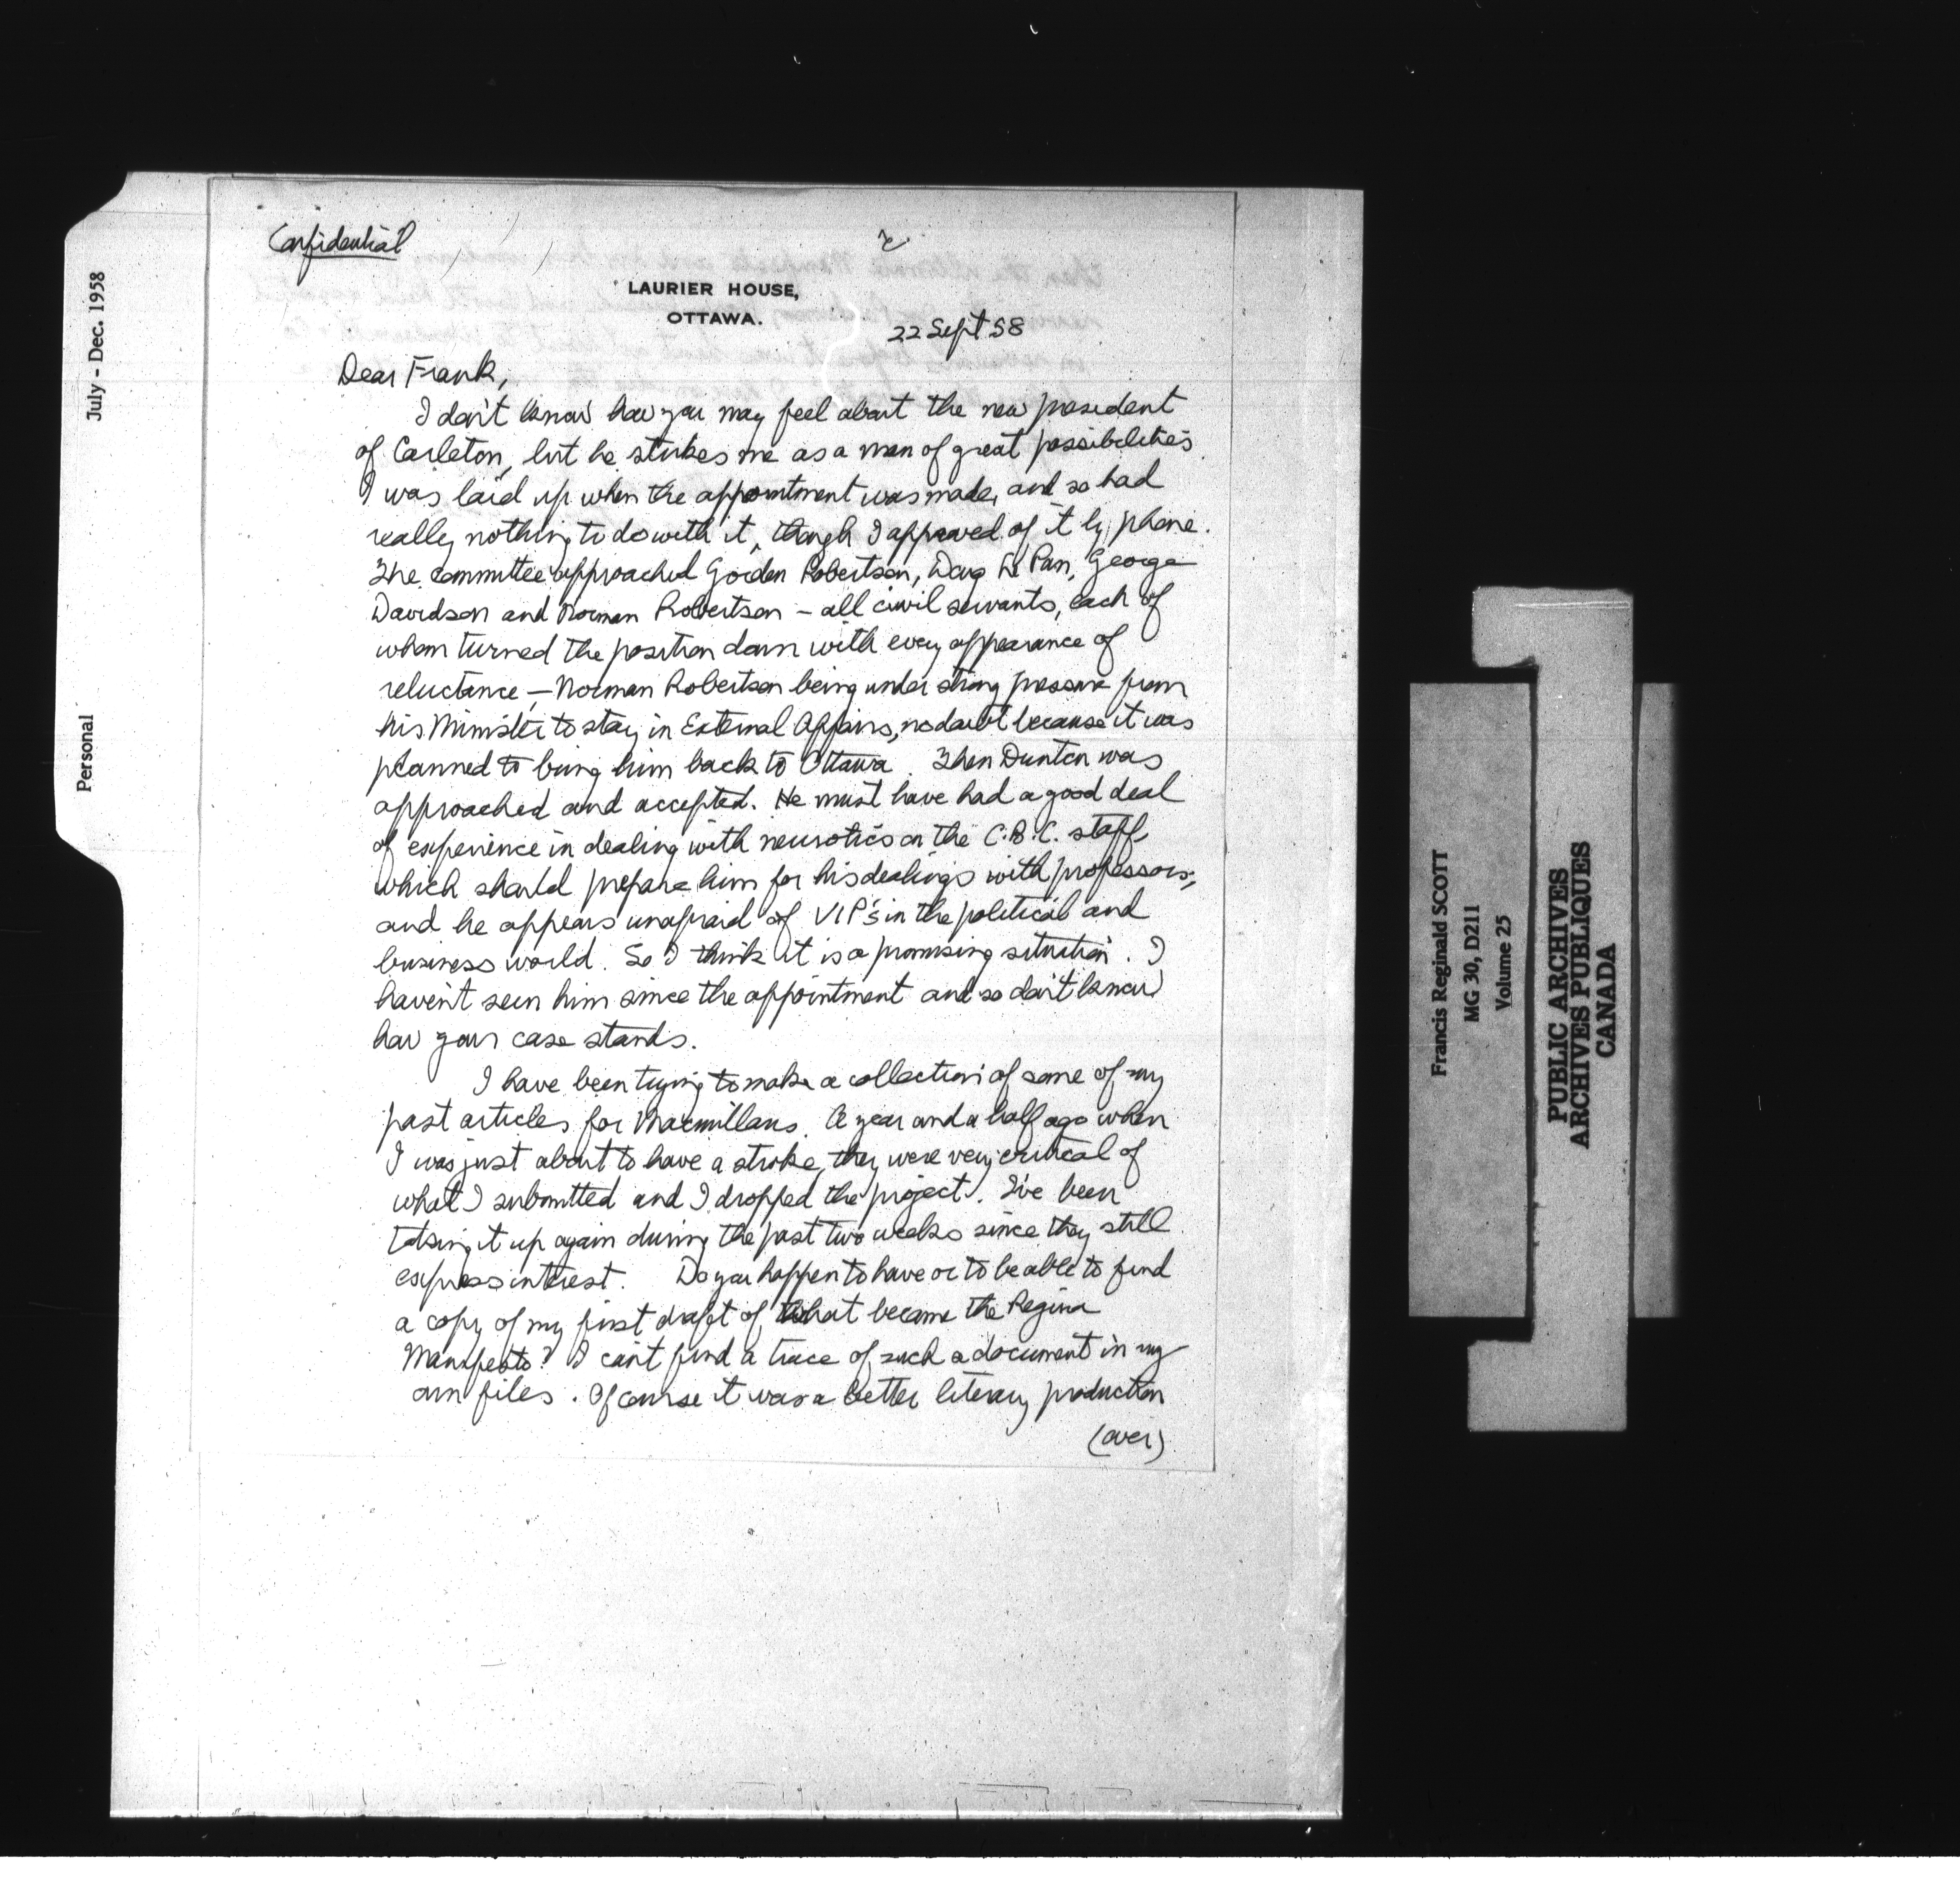 Confidential
LAURIER HOUSE,
OTTAWA.
22 Sept 58
Dear Frank,
I don't know how you may feel about the new president
of Carleton, but he strikes me as a man of great possibilities.
I was laid up when the appointment was made, and so had
really nothing to do with it, though I approved of it by phone.
The committee approached Gordon Robertson, Doug Le Pan, George
Davidson and Norman Robertson – all civil servants, each of
whom turned the position down with every appearance of
reluctance, – Norman Robertson being under strong pressure from
his Minister to stay in External Affairs, no doubt because it was
planned to bring him back to Ottawa. Then Dunton was
approached and accepted. He must have had a good deal
of experience in dealing with neurotics on the C.B.C. staff,
which should prepare him for his dealings with professors;
and he appears unafraid of VIP's in the political and
business world. So I think it is a promising situation. I
haven't seen him since the appointment and so don't know
how your case stands.
I have been trying to make a collection of some of my
past articles for Macmillans. A year and a half ago when
I was just about to have a stroke, they were very critical of
what I submitted and I dropped the project. I've been
taking it up again during the past two weeks since they still
express interest. Do you happen to have or to be able to find
a copy of my first draft of what became the Regina
Manifesto? I can't find a trace of such a document in my
own files. Of course it was a better literary production
(over)
July - Dec. 1958
Personal
Francis Reginald SCOTT
MG 30, D211
Volume 25
PUBLIC ARCHIVES
ARCHIVES PUBLIQUES
CANADA